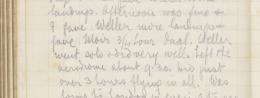 landings. Afternoon was fine &
I gave Weller more landings &
gave Moir 3/4 hour dual. Weller
went solo & did very well. Left the
aerodrome about 9.30. Did just
over 3 hours flying in all. Was
going to London